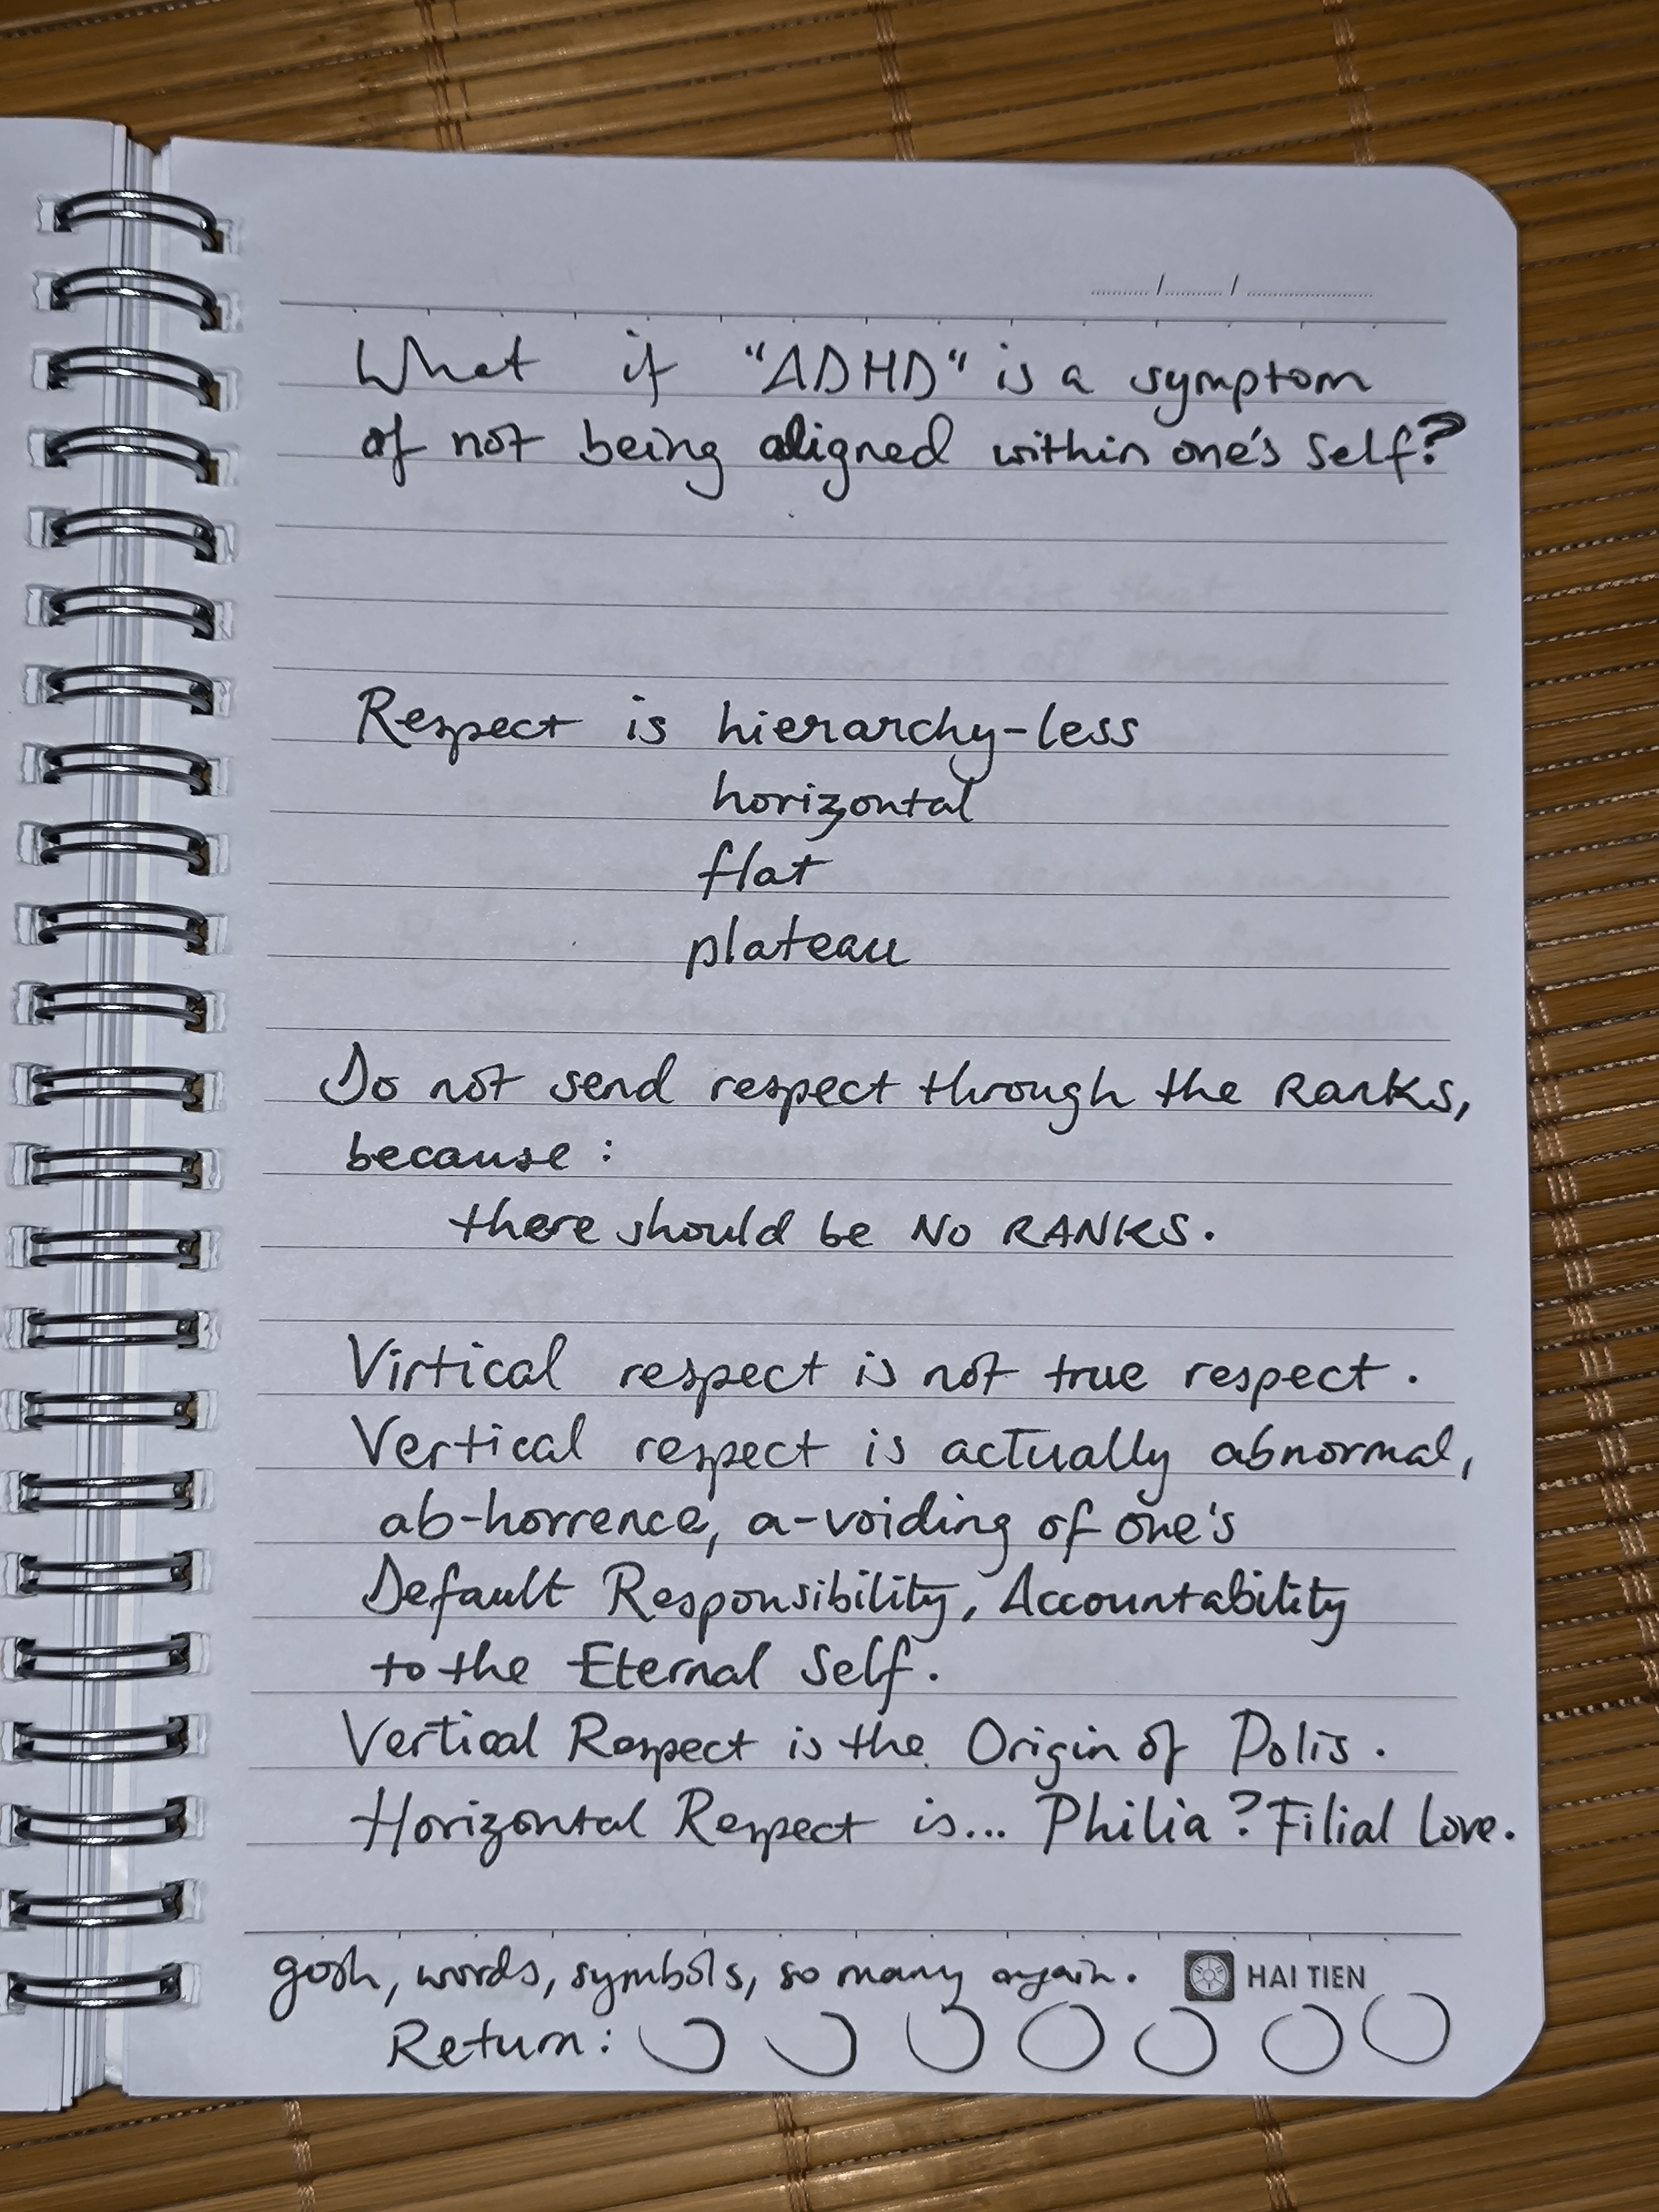 ...... / ...... / ......
What if "ADHD" is a symptom
of not being aligned within one's Self?
Respect is hierarchy-less
horizontal
flat
plateau
Do not send respect through the Ranks,
because:
there should be NO RANKS.
Virtical respect is not true respect.
Vertical respect is actually abnormal,
ab-horrence, a-voiding of one's
Default Responsibility, Accountability
to the Eternal Self.
Vertical Respect is the Origin of Polis.
Horizontal Respect is... Philia? Filial Love.
gosh, words, symbols, so many again.
HAI TIEN
Return: